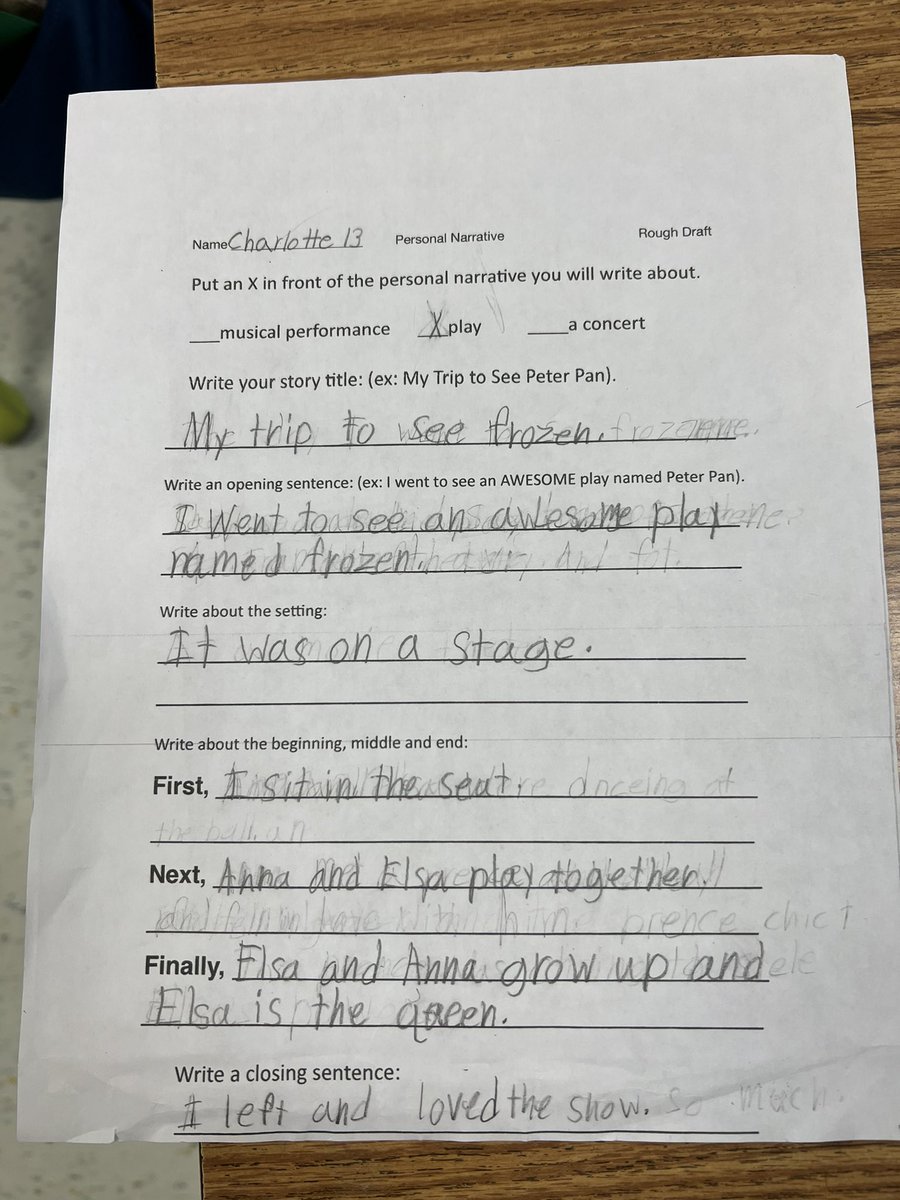 Name Charlotte 13 Personal Narrative Rough Draft
Put an X in front of the personal narrative you will write about.
___musical performance X play ____a concert
Write your story title: (ex: My Trip to See Peter Pan).
My trip to see frozen.
Write an opening sentence: (ex: I went to see an AWESOME play named Peter Pan).
I Went to see an awesome play
named frozen.
Write about the setting:
It was on a stage.
Write about the beginning, middle and end:
First, I sit in the seat
the ball. an
Next, Anna and Elsa play together.
Finally, Elsa and Anna grow up and
Elsa is the queen.
Write a closing sentence:
I left and loved the show. so much.